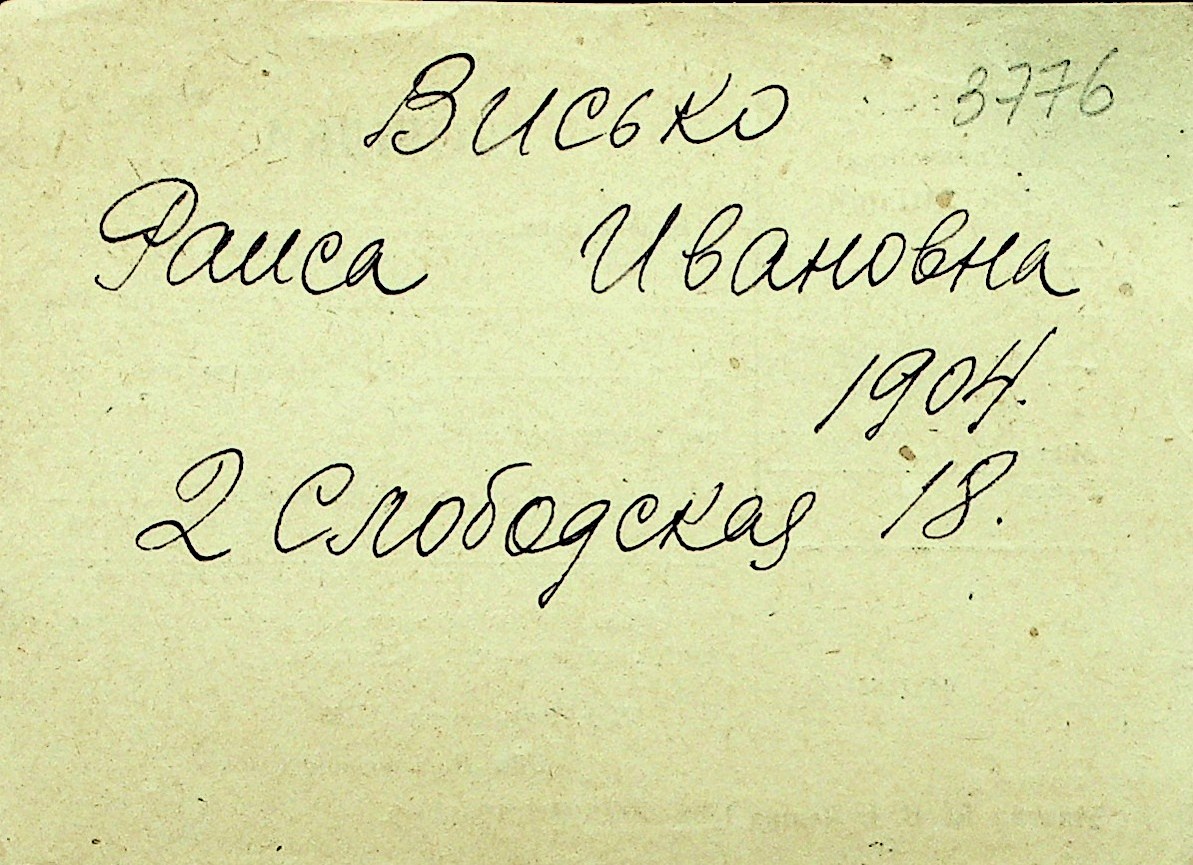 3776
Висько
Раиса Ивановна
1904.
2 Слободская 18.